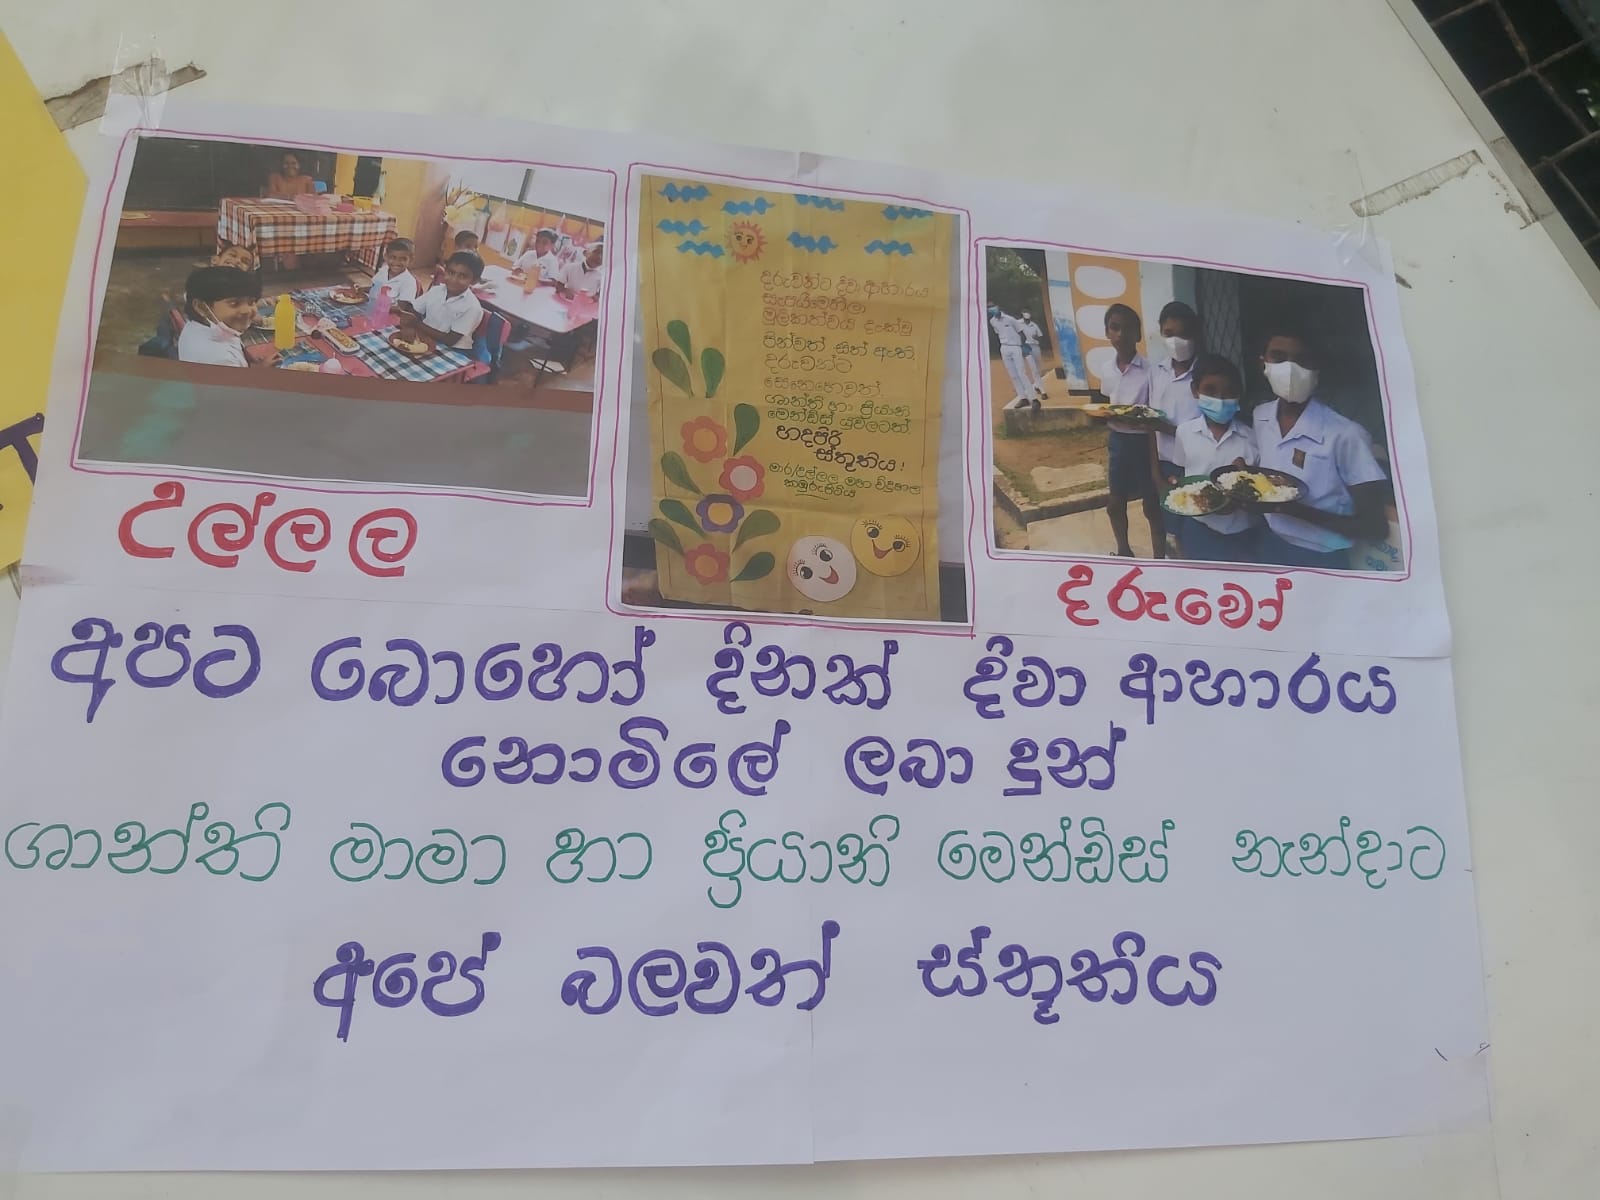 දරුවන්ට දිවා ආහාරය
සැපයීමෙහිලා
මූලිකත්වය දැක්වූ
පින්වත් සිත් ඇති,
දරුවන්ට
සෙනෙහෙවත්,
ශාන්ති හා ප්‍රියානි
මෙන්ඩිස් යුවලටත්,
හදපිරි
ස්තූතිය!
මාර/උල්ලල මහා විද්‍යාල
කඹුරුපිටිය
උල්ලල
දරුවෝ
අපට බොහෝ දිනක් දිවා ආහාරය
නොමිලේ ලබා දුන්
ශාන්ති මාමා හා ප්‍රියානි මෙන්ඩිස් නැන්දාට
අපේ බලවත් ස්තූතිය